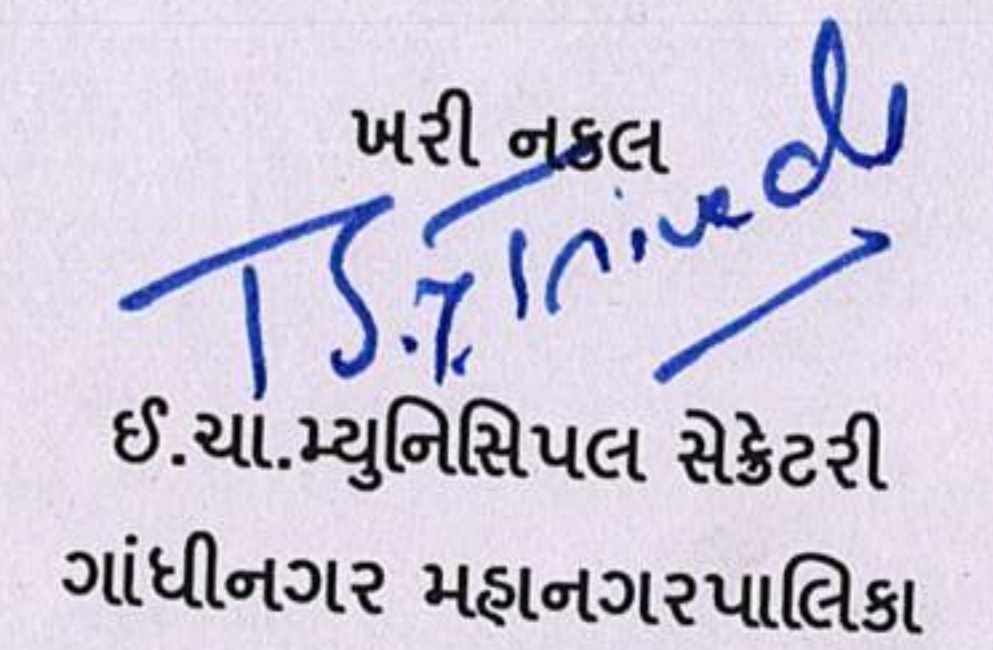 ખરી નકલ
Trivedi
ઈ.ચા.મ્યુનિસિપલ સેક્રેટરી
ગાંધીનગર મહાનગરપાલિકા